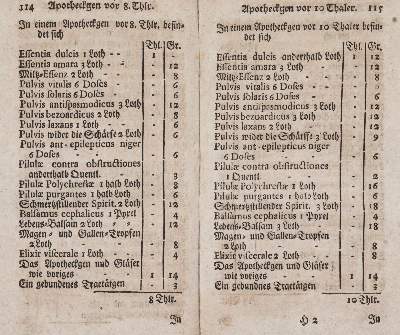 114 Apotheckgen vor 8. Thlr.
In einem Apotheckgen vor 8. Thlr. befin-
det sich
Thl. Gr.
Essentia dulcis 1 Loth - - 1 -
Essentia amara 3 Loth - - 12
Miltz-Essenz 2 Loth - - 8
Pulvis vitalis 6 Doses - - 6
Pulvis solaris 6 Doses - - 6
Pulvis antispasmodicus 3 Loth - 12
Pulvis bezoardicus 2 Loth - 8
Pulvis laxans 1 Loth - - 6
Pulvis wider die Schärfe 2 Loth - 6
Pulvis ant-epilepticus niger
6 Doses - - 6
Pilulæ contra obstructiones
anderthalb Quentl. - - 3
Pilulæ Polychrestæ 1 halb Loth - 8
Pilulæ purgantes 1 halb Loth - 6
Schmertzstillender Spirit. 2 Loth - 12
Balsamus cephalicus 1 Pyxel - 4
Lebens-Balsam 2 Loth - - 12
Magen- und Gallen-Tropfen
2 Loth - - 8
Elixir viscerale 1 Loth - - 4
Das Apotheckgen und Gläser
wie voriges - 1 14
Ein gebundnes Tractätgen - 3
8 Thlr.
In
Apotheckgen vor 10 Thaler. 115
In einem Apotheckgen vor 10 Thaler befin-
det sich
Thl. Gr.
Essentia dulcis anderthalb Loth 1 12
Essentia amara 3 Loth - - 12
Miltz-Essenz 2 Loth - - 8
Pulvis vitalis 6 Doses - - 6
Pulvis solaris 6 Doses - - 6
Pulvis antispasmodicus 3 Loth - 12
Pulvis bezoardicus 3 Loth - 12
Pulvis laxans 2 Loth - - 12
Pulvis wider die Schärfe 3 Loth - 9
Pulvis ant-epilepticus niger
6 Doses - - 6
Pilulæ contra obstructiones
1 Quentl. - - 2
Pilulæ Polychrestæ 1 Loth - 16
Pilulæ purgantes 1 halb Loth - 6
Schmertzstillender Spirit. 3 Loth - 18
Balsamus cephalicus 1 Pyxel - 4
Lebens-Balsam 3 Loth - - 18
Magen- und Gallen-Tropfen
2 Loth - - 8
Elixir viscerale 2 Loth - - 8
Das Apotheckgen und Gläser
wie voriges - 1 14
Ein gebundnes Tractätgen - 3
10 Thlr.
H 2 In